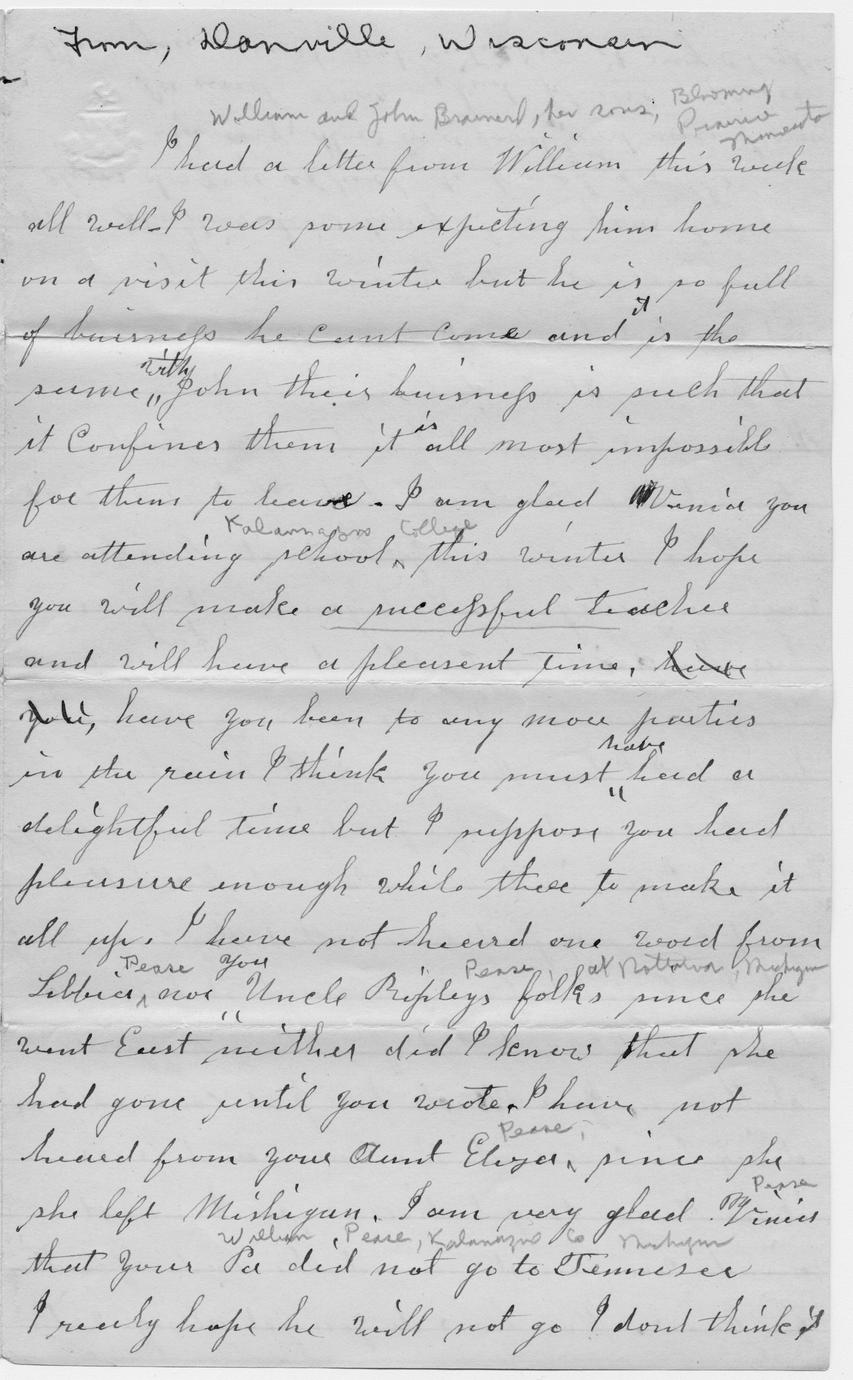 From, Danville, Wisconsin
William and John Brainerd, her sons, Blooming
Prairie
Minnesota
I had a letter from William this week
all well - I was some expecting him home
on a visit this winter but he is so full
it
of buisness he cant come and is the
with
same " John their buisness is such that
is
it Confines them it all most impossible
for them to leave. I am glad Vinia you
Kalamazoo College
are attending school, this winter I hope
you will make a successful teacher
and will have a pleasent time, have
you, have you been to any more parties
have
in the rain I think you must " had a
delightful time but I suppose you had
pleasure enough while there to make it
all up. I have not heard one word from
Pease you Pease, at Nottawa, Michigan
Libbia, nor " Uncle Ripleys folks since she
went East neither did I know that she
had gone until you wrote. I have not
Pease,
heard from your Aunt Eliza, since she
Pease
she left Mishigan. I am very glad Vinia
William Pease, Kalamazoo Co Michigan
that your Pa did not go to Tennesee
I realy hope he will not go I dont think it